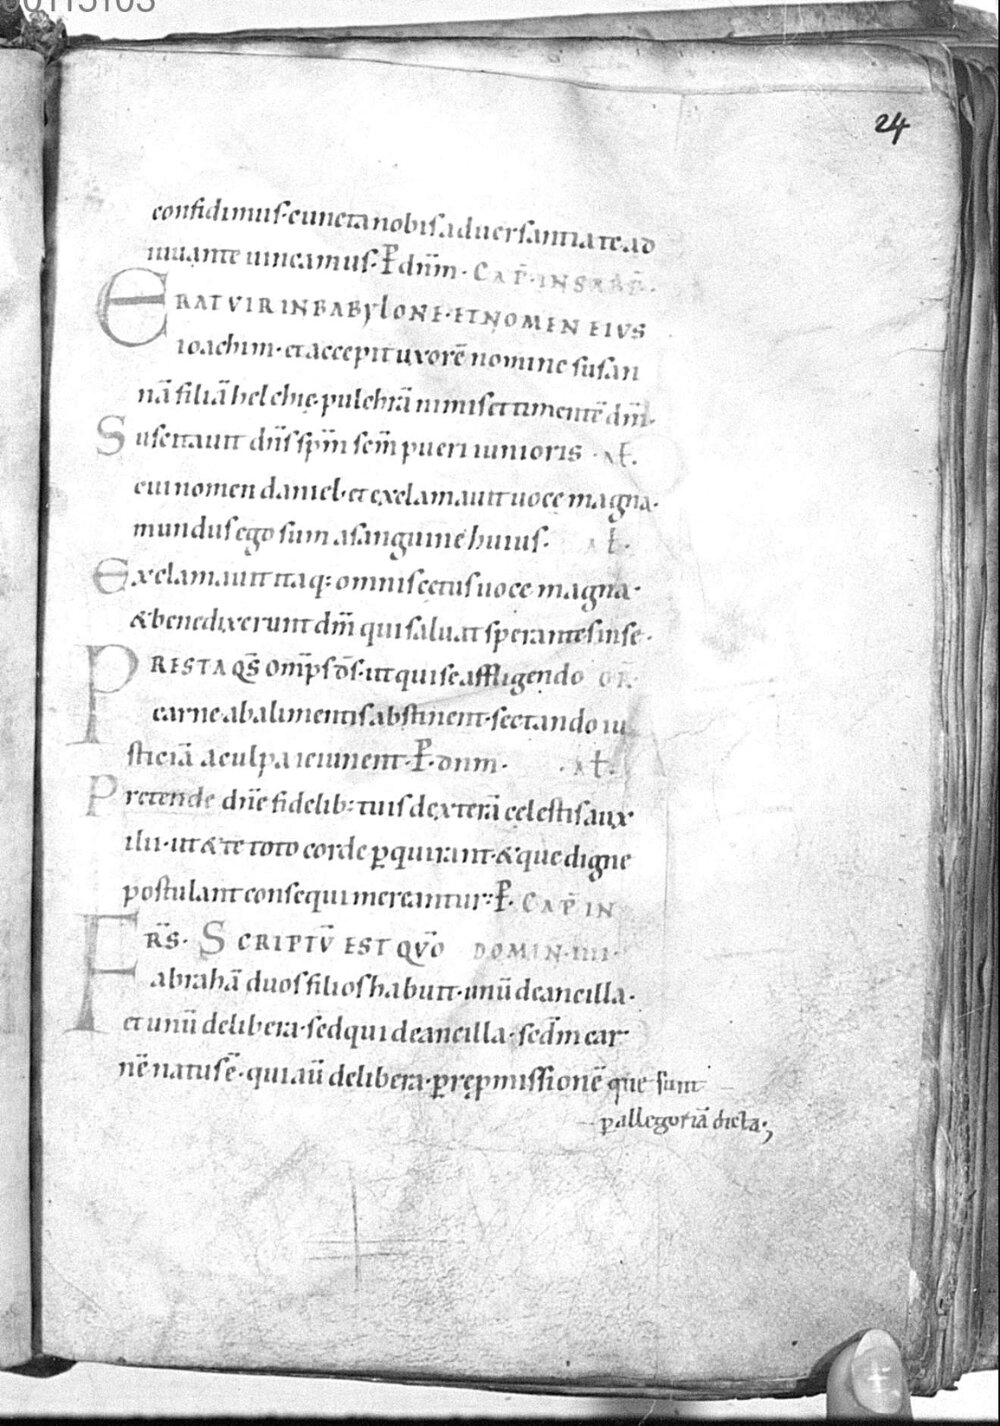 00115103
24
confidimus· cuncta nobis aduersantia te ad
iuuante uincamus· P̄ dn̄m· CAP̄· IN SABB̄·
ERAT VIR IN BABYLONE· ET NOMEN EIVS
ioachim· et accepit uxorē nomine susan
nā filiā helchie· pulchrā nimis et timentē dm̄·
Suscitauit dn̄s sp̄m sc̄m pueri iunioris· AƗ·
cui nomen daniel· et exclamauit uoce magna·
mundus ego sum a sanguine huius· AƗ·
Exclamauit itaq: omnis cetus uoce magna·
& benedixerunt dm̄ qui saluat sperantes in se·
PRESTA QS̄ omp̄s d̄s· ut qui se affligendo OR̄
carne ab alimentis abstinent· sectando iu
sticiā a culpa ieiunent· P̄· dnm· AƗ·
Pretende dn̄e fidelib: tuis dexterā cęlestis aux
ilii· ut & te toto corde ꝑquirant· & que digne
postulant consequi mereantur· P̄· CAP̄ IN
FRS̄· SCRIPTV̄ EST QVŌ DOMIN· IIII·
abrahā duos filios habuit· unū de ancilla·
et unū de libera· sed qui de ancilla· sedm̄ car
nē natus ē· qui aū de libera· ꝑ rępmissionē que sunt
ꝑ allegoriā dicta·,